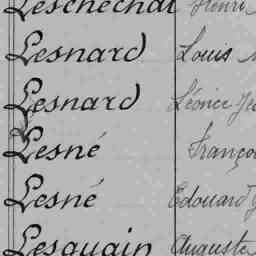 Leschechal Henri
Lesnard Louis
Lesnard Léonice
Lesné
Lesné Edouard
Lesquain Auguste